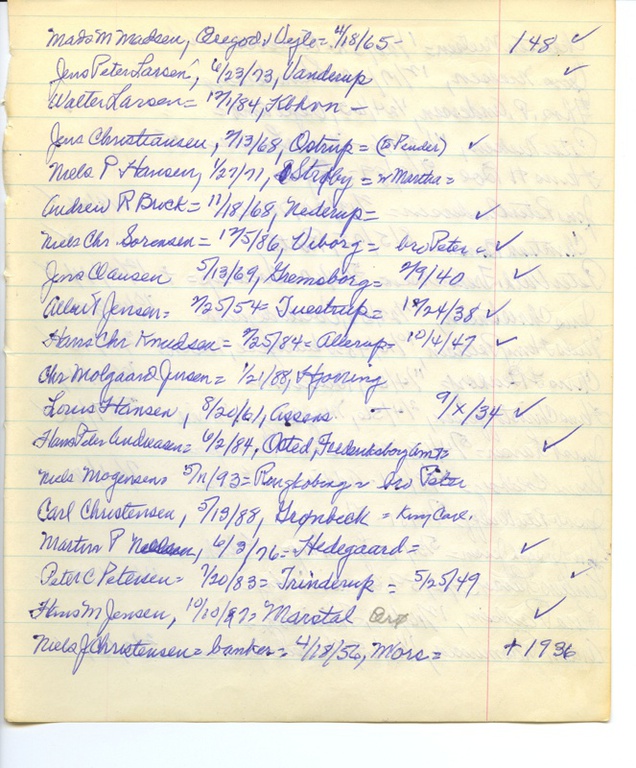 Mads M Madsen, Oregod, Vejle = 4/18/65 - 148 ✓
Jens Peter Larsen, 6/23/73, Vanderup ✓
Walter Larsen = 12/1/84, Kbhvn -
Jens Christiansen, 7/13/68, Ostrup = (to Pender) ✓
Niels P Hansen, 1/27/71, Strøby = w Martha =
Andrew R Buck = 11/18/68, Nederup = ✓
Niels Chr Sorensen = 12/5/86, Viborg = bro Peter = ✓
Jens Clausen 5/13/69, Gremsborg = 2/9/40 ✓
Albert Jensen = 7/25/54 = Tuestrup = 12/24/38 ✓
Hans Chr Knudsen = 7/25/84 = Allerup = 10/4/47 ✓
Chr Molgaard Jensen = 1/21/88, Hjorring
Louis Hansen, 8/20/61, Assens - 9/x/34 ✓
Hans Peter Andreasen = 6/2/84, Osted, Frederiksborg Amt = ✓
Niels Mogensen = 5/11/93 = Rengkobing = bro Peter
Carl Christensen, 5/13/88, Gronbeck = King Carl.
Martin P, 6/3/76 = Hedegaard = ✓
Peter C Petersen = 7/20/83 = Trinderup = 5/25/49 ✓
Hans M Jensen, 10/10/87 = Marstal Ærø ✓
Niels J Christensen = banker = 4/18/56, Mors = + 1936